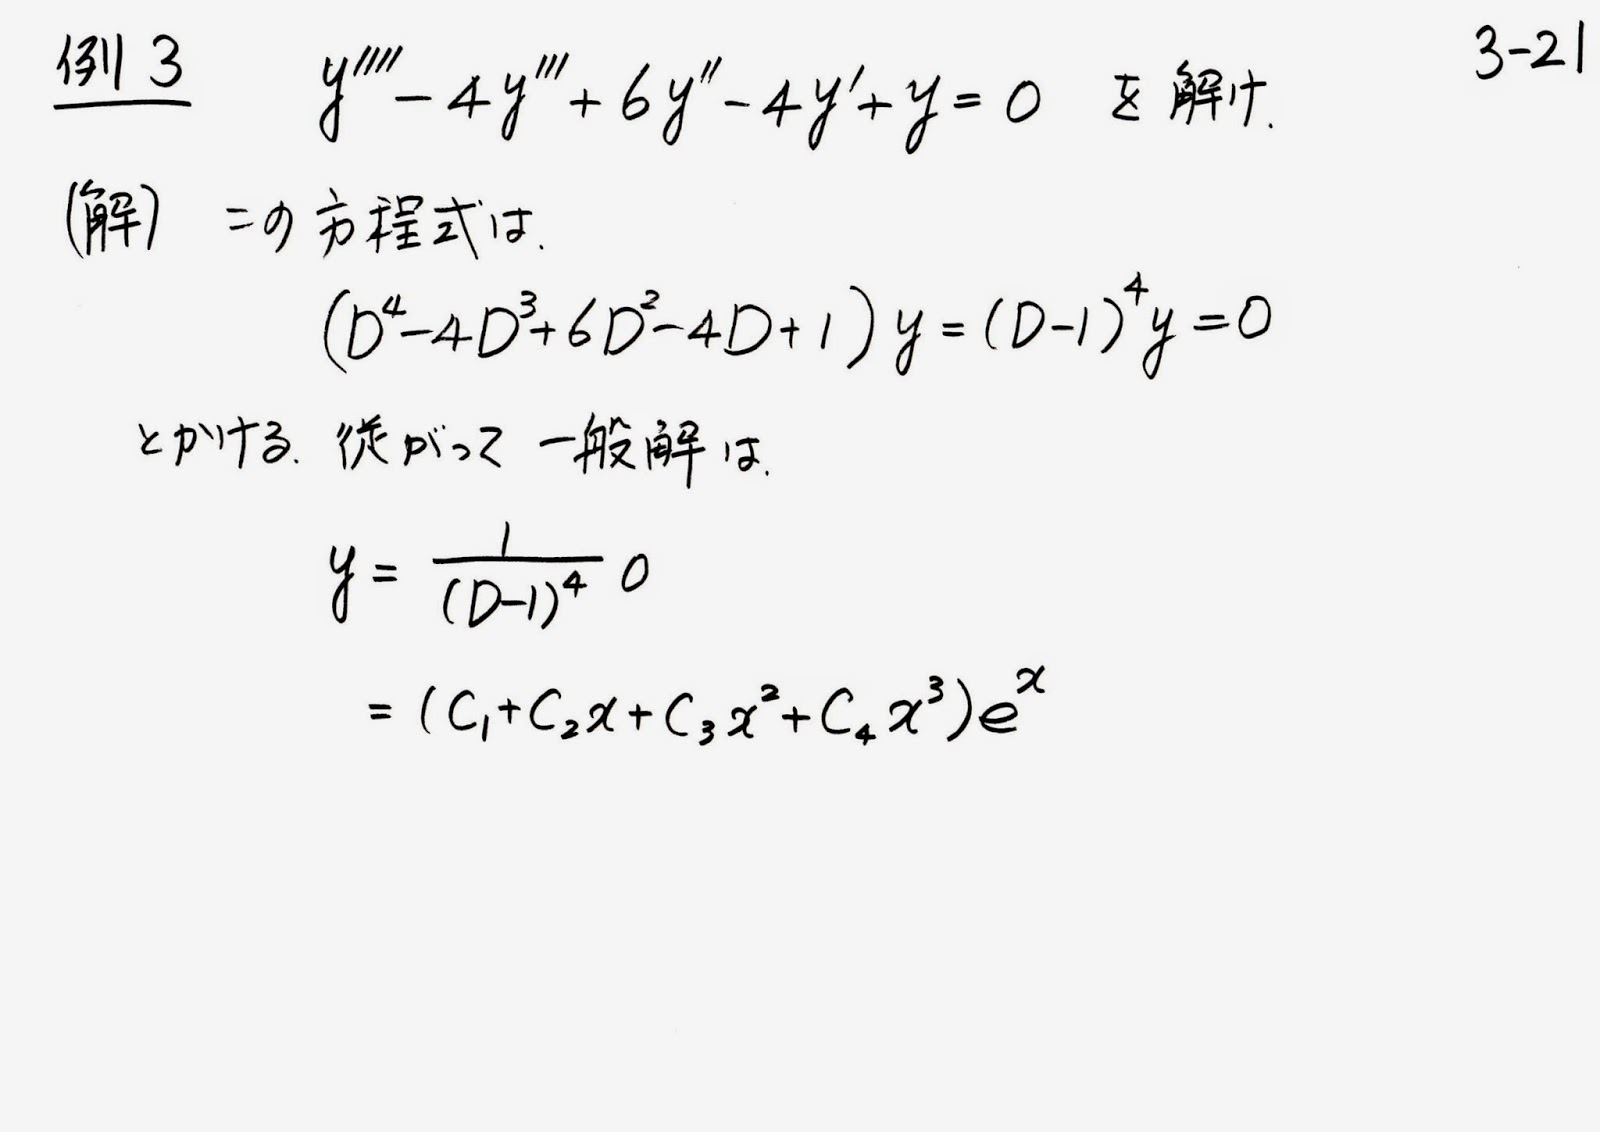 例3 y'''' - 4y''' + 6y'' - 4y' + y = 0 を解け. 3-21
(解) この方程式は.
(D⁴-4D³+6D²-4D+1)y = (D-1)⁴y = 0
とかける. 従がって一般解は.
y = 1/(D-1)⁴ 0
= (C₁+C₂x+C₃x²+C₄x³)eˣ